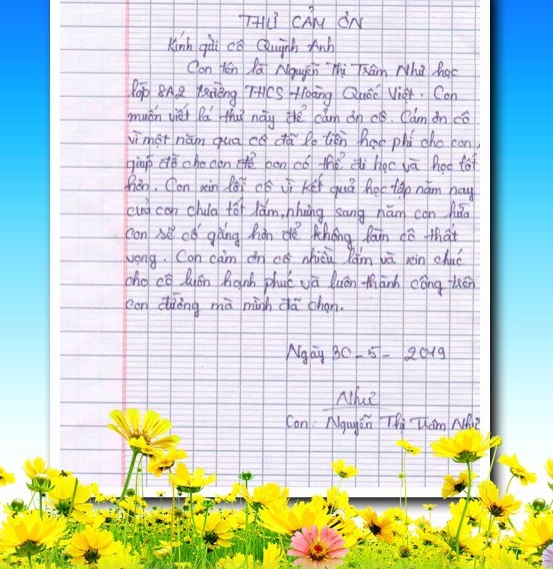 THƯ CẢM ƠN
Kính gửi cô Quỳnh Anh
Con tên là Nguyễn Thị Trâm Như học
lớp 8A2 trường THCS Hoàng Quốc Việt. Con
muốn viết lá thư này để cảm ơn cô. Cảm ơn cô
vì một năm qua cô đã lo tiền học phí cho con,
giúp đỡ cho con để con có thể đi học và học tốt
hơn. Con xin lỗi cô vì kết quả học tập năm nay
của con chưa tốt lắm, nhưng sang năm con hứa
con sẽ cố gắng hơn để không làm cô thất
vọng. Con cảm ơn cô nhiều lắm và xin chúc
cho cô luôn hạnh phúc và luôn thành công trên
con đường mà mình đã chọn.
Ngày 30-5-2019
Như
Con: Nguyễn Thị Trâm Như